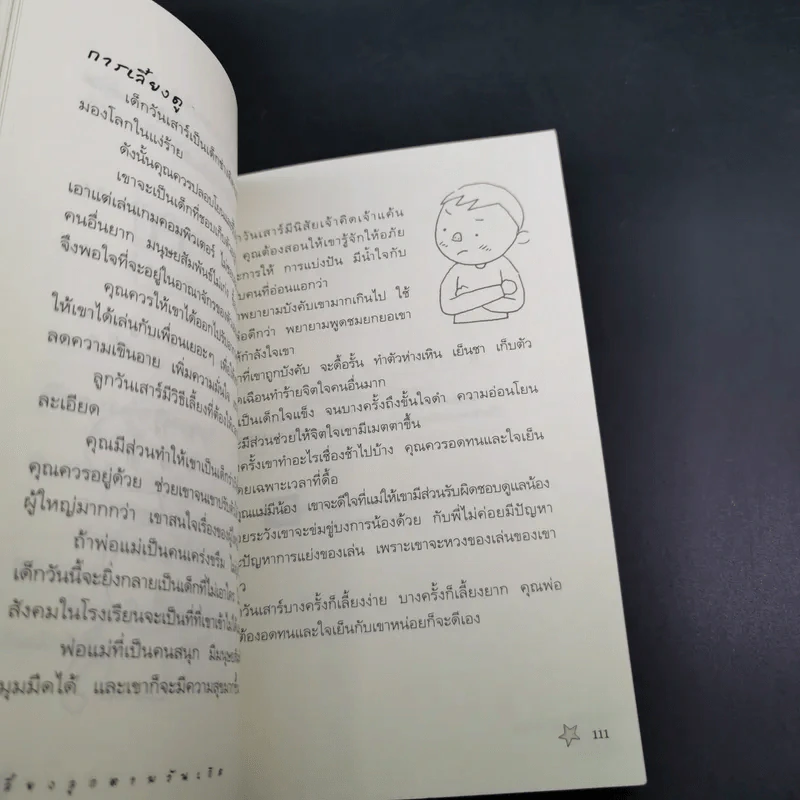 การเลี้ยงดู
เด็กวันเสาร์เป็นเด็ก
มองโลกในแง่ร้าย
ดังนั้นคุณควรปลอบโยน
เขาจะเป็นเด็กที่ชอบเก็บ
เอาแต่เล่นเกมคอมพิวเตอร์
คนอื่นยาก มนุษยสัมพันธ์ไม่
จึงพอใจที่จะอยู่ในอาณาจักรของ
คุณควรให้เขาได้ออกไป
ให้เขาได้เล่นกับเพื่อนเยอะๆ
ลดความเขินอาย เพิ่มความมั่นใจ
ลูกวันเสาร์มีวิธีเลี้ยงที่ต้อง
ละเอียด
คุณมีส่วนทำให้เขาเป็นเด็ก
คุณควรอยู่ด้วย ช่วยเขาจนเขา
ผู้ใหญ่มากกว่า เขาสนใจเรื่องของ
ถ้าพ่อแม่เป็นคนเคร่งขรึม
เด็กวันนี้จะยิ่งกลายเป็นเด็กที่ไม่เอา
สังคมในโรงเรียนจะเป็นที่ที่เขาเข้า
พ่อแม่ที่เป็นคนสนุก มี
มุมมืดได้ และเขาก็จะมีความสุข
วันเสาร์มีนิสัยเจ้าคิดเจ้าแค้น
คุณต้องสอนให้เขารู้จักให้อภัย
การให้ การแบ่งปัน มีน้ำใจกับ
คนที่อ่อนแอกว่า
พยายามบังคับเขามากเกินไป ใช้
ดีกว่า พยายามพูดชมยกยอเขา
ให้กำลังใจเขา
ที่เขาถูกบังคับ จะดื้อรั้น ทำตัวห่างเหิน เย็นชา เก็บตัว
เฉือนทำร้ายจิตใจคนอื่นมาก
เป็นเด็กใจแข็ง จนบางครั้งถึงขั้นใจดำ ความอ่อนโยน
มีส่วนช่วยให้จิตใจเขามีเมตตาขึ้น
ครั้งเขาทำอะไรเชื่องช้าไปบ้าง คุณควรอดทนและใจเย็น
โดยเฉพาะเวลาที่ดื้อ
คุณแม่มีน้อง เขาจะดีใจที่แม่ให้เขามีส่วนรับผิดชอบดูแลน้อง
ระวังเขาจะข่มขู่บงการน้องด้วย กับพี่ไม่ค่อยมีปัญหา
ปัญหาการแย่งของเล่น เพราะเขาจะหวงของเล่นของเขา
ว
วันเสาร์บางครั้งก็เลี้ยงง่าย บางครั้งก็เลี้ยงยาก คุณพ่อ
ต้องอดทนและใจเย็นกับเขาหน่อยก็จะดีเอง
111